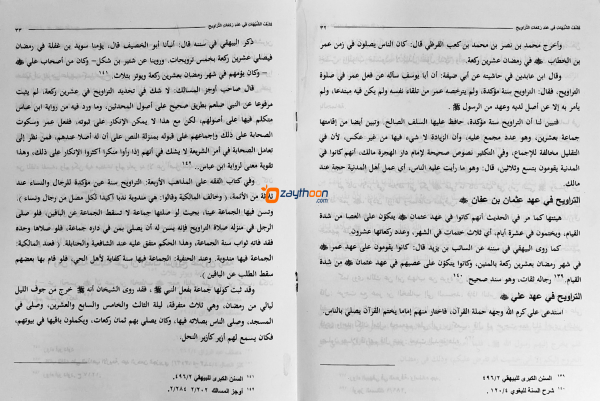 ٣٢ كشف الشبهات في عدد ركعات التراويح
وأخرج محمد بن نصر بن محمد بن كعب القرظي قال: كان الناس يصلون في زمن عمر
بن الخطاب في رمضان عشرين ركعة.
وقال ابن عابدين في حاشيته عن أبي حنيفة: أن أبا يوسف سأله عن فعل عمر في صلوة
التراويح، فقال: التراويح سنة مؤكدة، ولم يتخرصه عمر من تلقاء نفسه ولم يكن فيه مبتدعا، ولم
يأمر به إلا عن أصل لديه وعهد من الرسول
فتبين لنا أن التراويح سنة مؤكدة، حافظ عليها السلف الصالح. وتبين أيضا من إقامتها
جماعة بعشرين، وهو عدد مجمع عليه، وأن الزيادة لا شيء فيها من غير عكس، لأن في
التقليل مخالفة للإجماع، وفي التكثير نصوص صحيحة لإمام دار الهجرة مالك، أنهم كانوا في
المدينة يقومون بتسع وثلاثين، قال: وهو ما رأيت عليه الناس، أي عمل أهل المدينة حجة عند
مالك.
التراويح في عهد عثمان بن عفان
هيئتها كما مر في الحديث أنهم كانوا في عهد عثمان يتكؤن على العصا من شدة
القيام، ويختمون في عشرة أيام، أي ثلاث ختمات في الشهر، وعدد ركعاتها عشرون.
كما روى البيهقي في سننه عن السائب بن يزيد قال: كانوا يقومون على عهد عمر
في شهر رمضان بعشرين ركعة بالمئين، وكانوا يتكؤن على عصيهم في عهد عثمان من شدة
القيام. ١٣٩ رجاله ثقات، وهو سند صحيح. ١٤٠
التراويح في عهد علي
استدعى علي كرم الله وجهه حملة القرآن، فاختار منهم إماما يختم القرآن يصلي بالناس.
١٣٩ السنن الكبرى للبيهقي ٤٩٦/٢
١٤٠ شرح السنة للبغوي ١٢٠/٤.
كشف الشبهات في عدد ركعات التراويح ٣٣
ذكر البيهقي في سننه قال: أنبأنا أبو الخصيف قال، يؤمنا سويد بن غفلة في رمضان
فيصلي عشرين ركعة بخمس ترويحات. وروينا عن شتير بن شكل- وكان من أصحاب علي
-وكان يؤمهم في شهر رمضان بعشرين ركعة ويوتر بثلاث. ١٤١
قال صاحب أوجز المسالك: لا شك في تحديد التراويح في عشرين ركعة، لم يثبت
مرفوعا عن النبي صلعم بطريق صحيح على أصول المحدثين، وما ورد فيه من رواية ابن عباس
متكلم فيها على أصولهم، لكن مع هذا لا يمكن الإنكار على ثبوته، ففعل عمر وسكوت
الصحابة على ذلك وإجماعهم على قبوله بمنزلة النص على أن له أصلا عندهم، فمن نظر إلى
تعامل الصحابة في أمر الشريعة لا يشك في أنهم إذا رأوا منكرا أكثروا الإنكار على ذلك، وهذا
تقوية معنى لرواية ابن عباس.. ١٤٢
وفي كتاب الفقه على المذاهب الأربعة: التراويح سنة عين مؤكدة للرجال والنساء عند
ثلاثة من الأئمة، ( وخالف المالكية وقالوا: هي مندوبة ندبا أكيدا لكل مصل من رجال ونساء )
وتسن فيها الجماعة عينا، بحيث لو صلتها جماعة لا تسقط الجماعة عن الباقين، فلو صلى
الرجل في منزله صلاة التراويح فإنه يسن له أن يصلي بمن في داره جماعة، فلو صلاها وحده
فقد فاته ثواب سنة الجماعة، وهذا الحكم متفق عليه عند الشافعية والحنابلة. ( فعند المالكية:
الجماعة فيها مندوبة. وعند الحنفية: الجماعة فيها سنة كفاية لأهل الحي، فلو قام بها بعضهم
سقط الطلب عن الباقين )
وقد ثبت كونها جماعة بفعل النبي ، فقد روى الشيخان أنه خرج من جوف الليل
ليالي من رمضان، وهي ثلاث متفرقة، ليلة الثالث والخامس والسابع والعشرين، وصلى في
المسجد، وصلى الناس بصلاته فيها، وكان يصلي بهم ثمان ركعات، ويكملون باقيها في بيوتهم،
فكان يسمع لهم أزيز كأزيز النحل.
١٤١ السنن الكبرى للبيهقي ٤٩٦/٢.
١٤٢ أوجز المسالك ٢٠٢/٢ ٢٨٤/٢
zaythoon.com